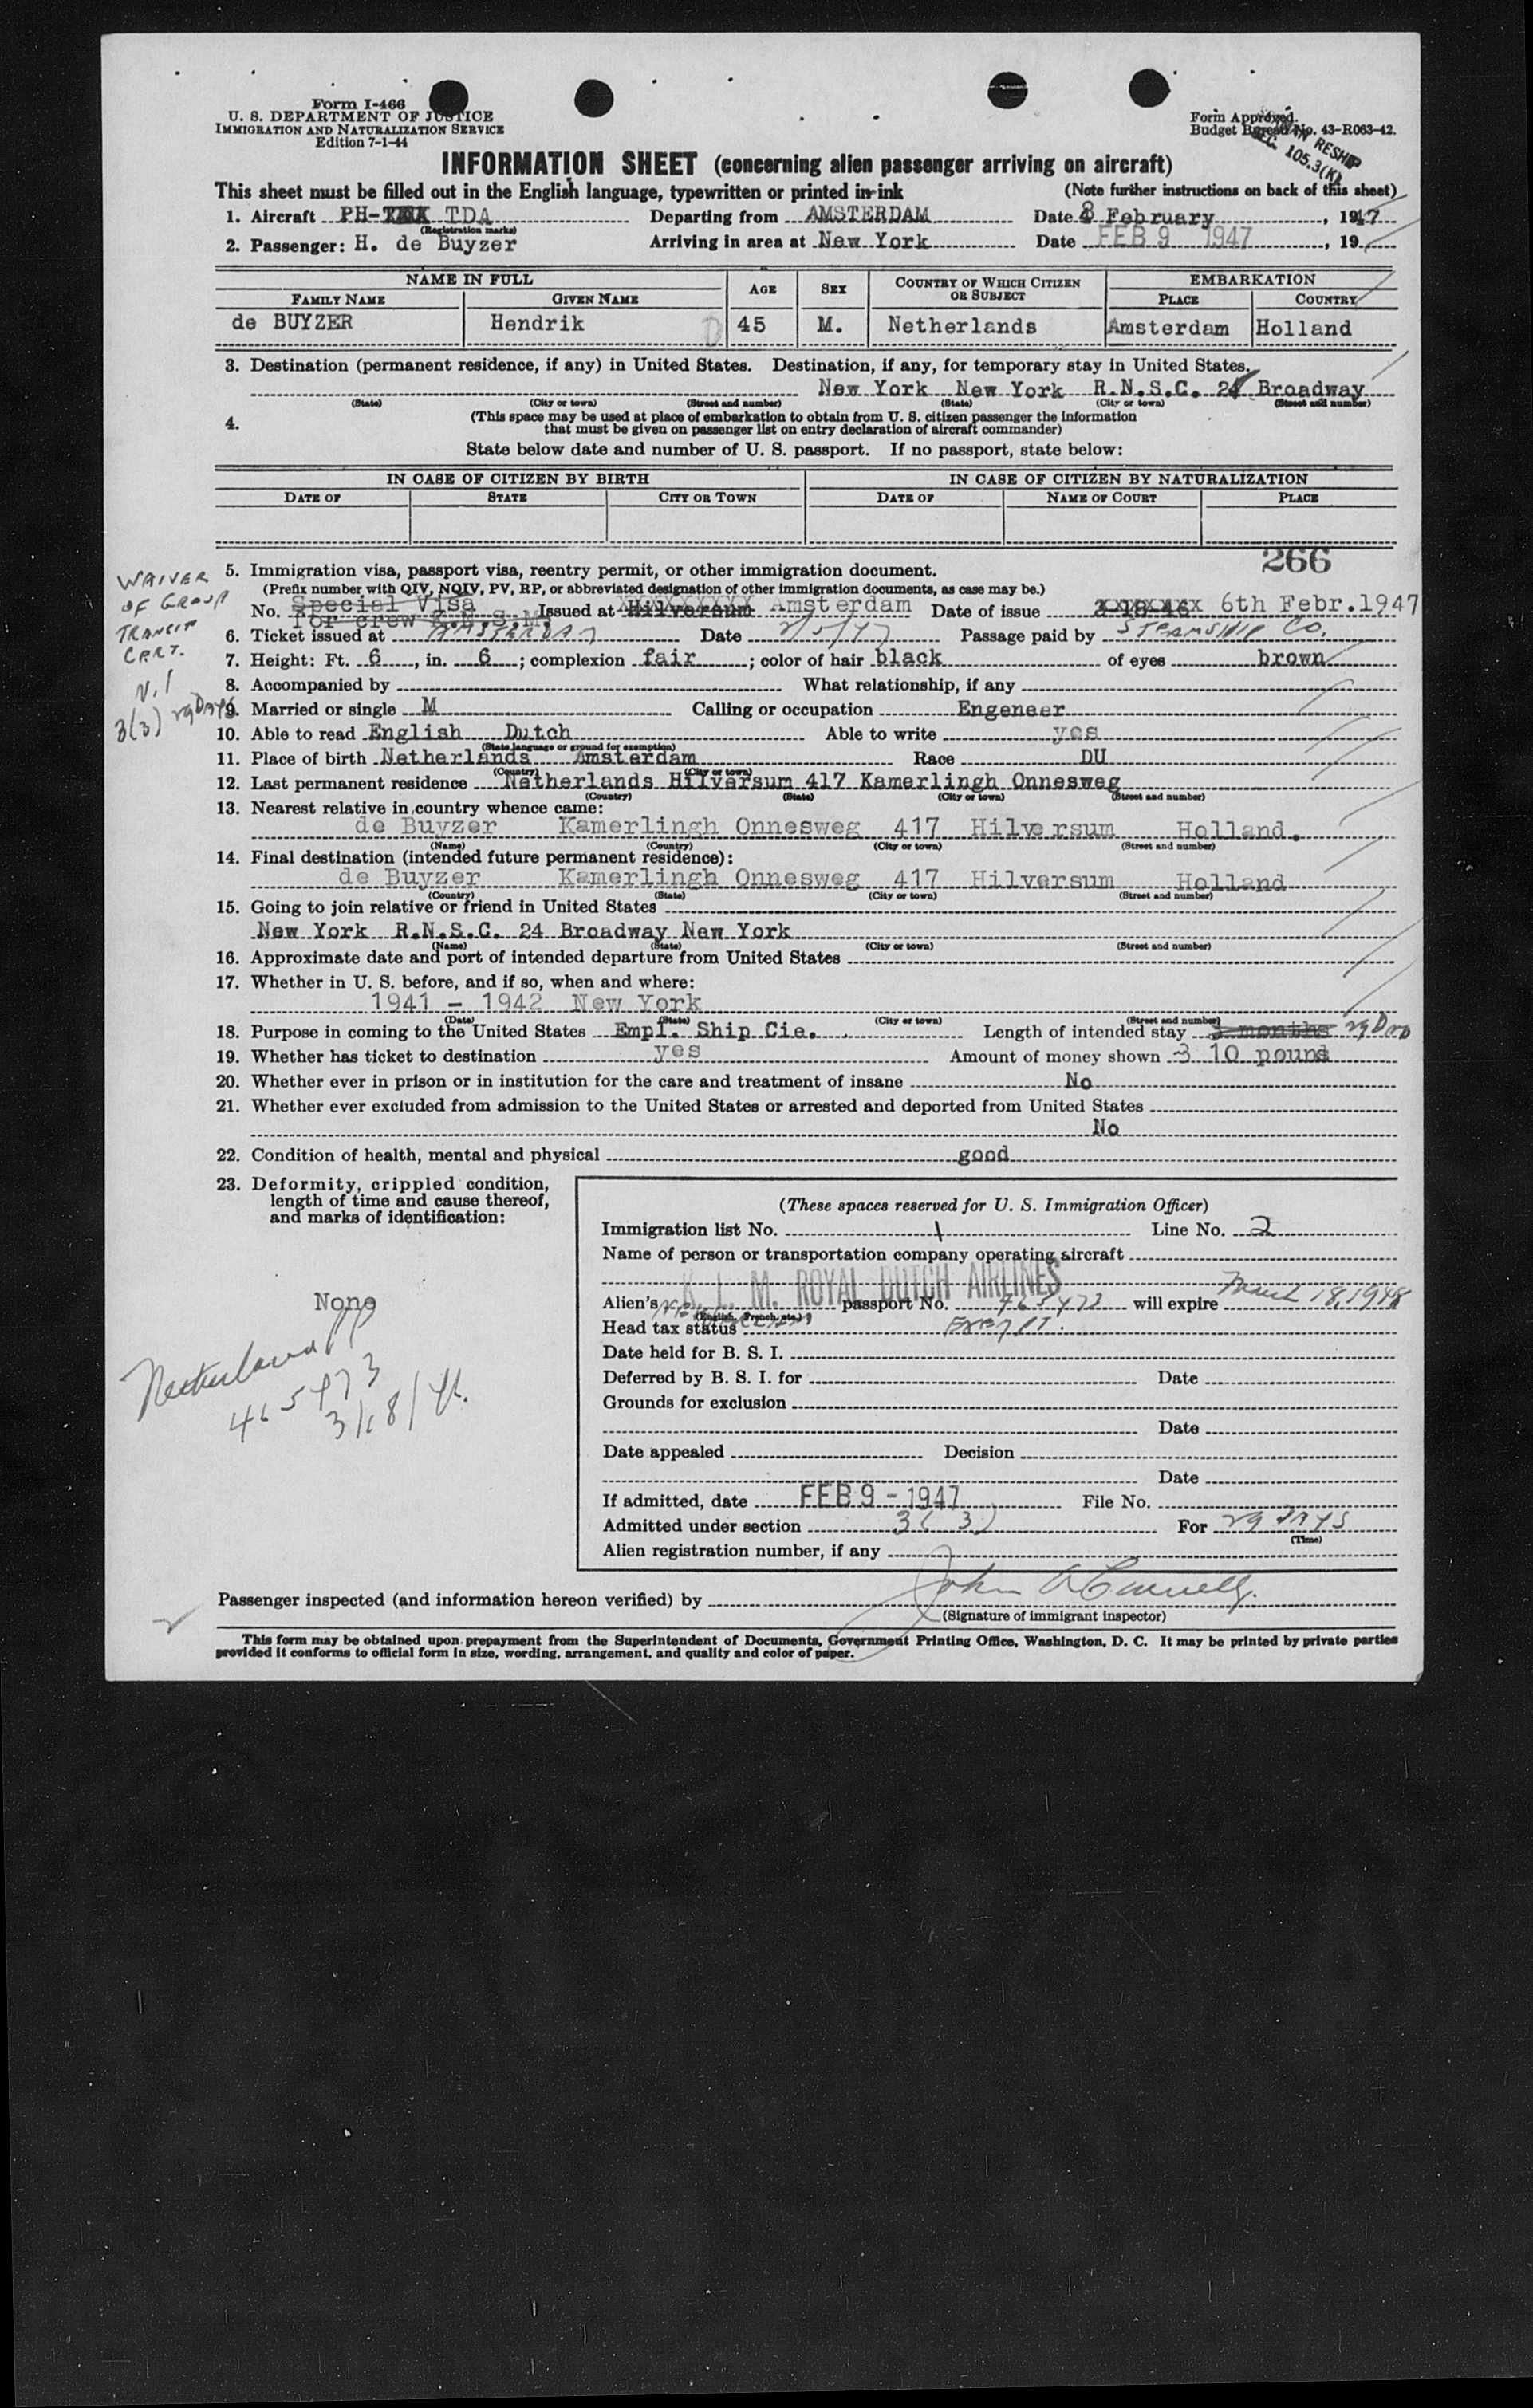 Form I-466
U. S. DEPARTMENT OF JUSTICE
IMMIGRATION AND NATURALIZATION SERVICE
Edition 7-1-44
Form Approved.
Budget Bureau No. 43-R063-42.
RESHIP
SEC. 105.3(K)
INFORMATION SHEET (concerning alien passenger arriving on aircraft)
This sheet must be filled out in the English language, typewritten or printed in ink (Note further instructions on back of this sheet)
1. Aircraft PH- TDA Departing from AMSTERDAM Date 8 February, 1947
(Registration marks)
2. Passenger: H. de Buyzer Arriving in area at New York Date FEB 9 1947, 19
NAME IN FULL AGE SEX COUNTRY OF WHICH CITIZEN OR SUBJECT EMBARKATION
FAMILY NAME GIVEN NAME PLACE COUNTRY
de BUYZER Hendrik D 45 M. Netherlands Amsterdam Holland
3. Destination (permanent residence, if any) in United States. Destination, if any, for temporary stay in United States.
New York New York R.N.S.C. 24 Broadway
(State) (City or town) (Street and number) (State) (City or town) (Street and number)
4. (This space may be used at place of embarkation to obtain from U. S. citizen passenger the information
that must be given on passenger list on entry declaration of aircraft commander)
State below date and number of U. S. passport. If no passport, state below:
IN CASE OF CITIZEN BY BIRTH IN CASE OF CITIZEN BY NATURALIZATION
DATE OF STATE CITY OR TOWN DATE OF NAME OF COURT PLACE
266
WAIVER
OF GROUP
TRANSIT
CERT.
N.I
3(3) 29 DAYS
5. Immigration visa, passport visa, reentry permit, or other immigration document.
(Prefix number with QIV, NQIV, PV, RP, or abbreviated designation of other immigration documents, as case may be.)
No. Special Visa Issued at Hilversum Amsterdam Date of issue 3-18-46 6th Febr. 1947
for crew R.N.S.M.
6. Ticket issued at AMSTERDAM Date 2/5/47 Passage paid by STEAMSHIP CO.
7. Height: Ft. 6, in. 6; complexion fair; color of hair black of eyes brown
8. Accompanied by What relationship, if any
9. Married or single M Calling or occupation Engeneer
10. Able to read English Dutch Able to write yes
(State language or ground for exemption)
11. Place of birth Netherlands Amsterdam Race DU
(Country) (City or town)
12. Last permanent residence Netherlands Hilversum 417 Kamerlingh Onnesweg
(Country) (State) (City or town) (Street and number)
13. Nearest relative in country whence came:
de Buyzer Kamerlingh Onnesweg 417 Hilversum Holland.
(Name) (Country) (City or town) (Street and number)
14. Final destination (intended future permanent residence):
de Buyzer Kamerlingh Onnesweg 417 Hilversum Holland
(Country) (State) (City or town) (Street and number)
15. Going to join relative or friend in United States
New York R.N.S.C. 24 Broadway New York
(Name) (State) (City or town) (Street and number)
16. Approximate date and port of intended departure from United States
17. Whether in U. S. before, and if so, when and where:
1941 - 1942 New York
(Date) (State) (City or town) (Street and number)
18. Purpose in coming to the United States Empl. Ship Cie. Length of intended stay 3 months 29 Days
19. Whether has ticket to destination yes Amount of money shown 10 pound
20. Whether ever in prison or in institution for the care and treatment of insane No
21. Whether ever excluded from admission to the United States or arrested and deported from United States
No
22. Condition of health, mental and physical good
23. Deformity, crippled condition,
length of time and cause thereof,
and marks of identification:
None
Netherland PP
465473
3/18/48
(These spaces reserved for U. S. Immigration Officer)
Immigration list No. 1 Line No. 2
Name of person or transportation company operating aircraft
K. L. M. ROYAL DUTCH AIRLINES
Alien's passport No. 465473 will expire March 18, 1948
(English, French, etc.)
Head tax status EXEMPT.
Date held for B. S. I.
Deferred by B. S. I. for Date
Grounds for exclusion
Date
Date appealed Decision
Date
If admitted, date FEB 9 - 1947 File No.
Admitted under section 3(3) For 29 DAYS
(Time)
Alien registration number, if any
Passenger inspected (and information hereon verified) by John A Connelly.
(Signature of immigrant inspector)
This form may be obtained upon prepayment from the Superintendent of Documents, Government Printing Office, Washington, D. C. It may be printed by private parties
provided it conforms to official form in size, wording, arrangement, and quality and color of paper.